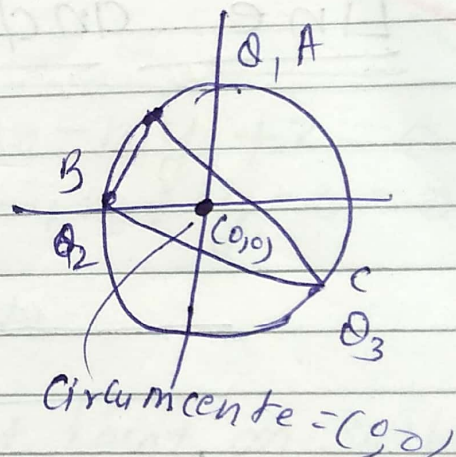 θ, A
B
θ2
(0,0)
C
θ3
Circumcente = (0,0)